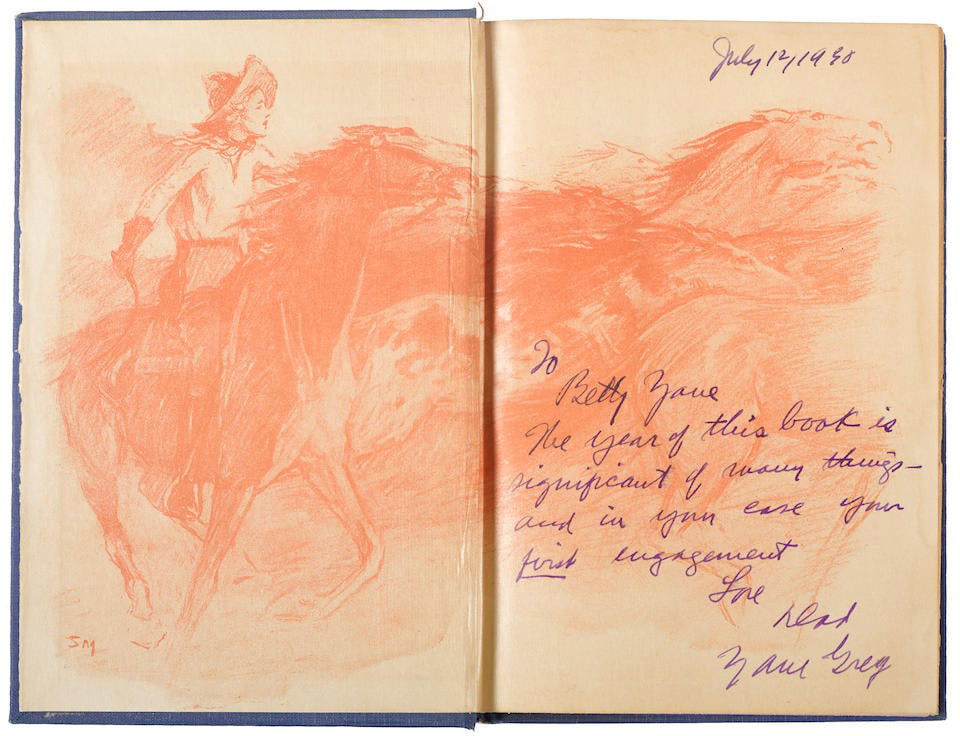 July 12, 1930
To
Betty Zane
The year of this book is
significant of many things—
and in your case your
first engagement
Love
Dad
Zane Grey